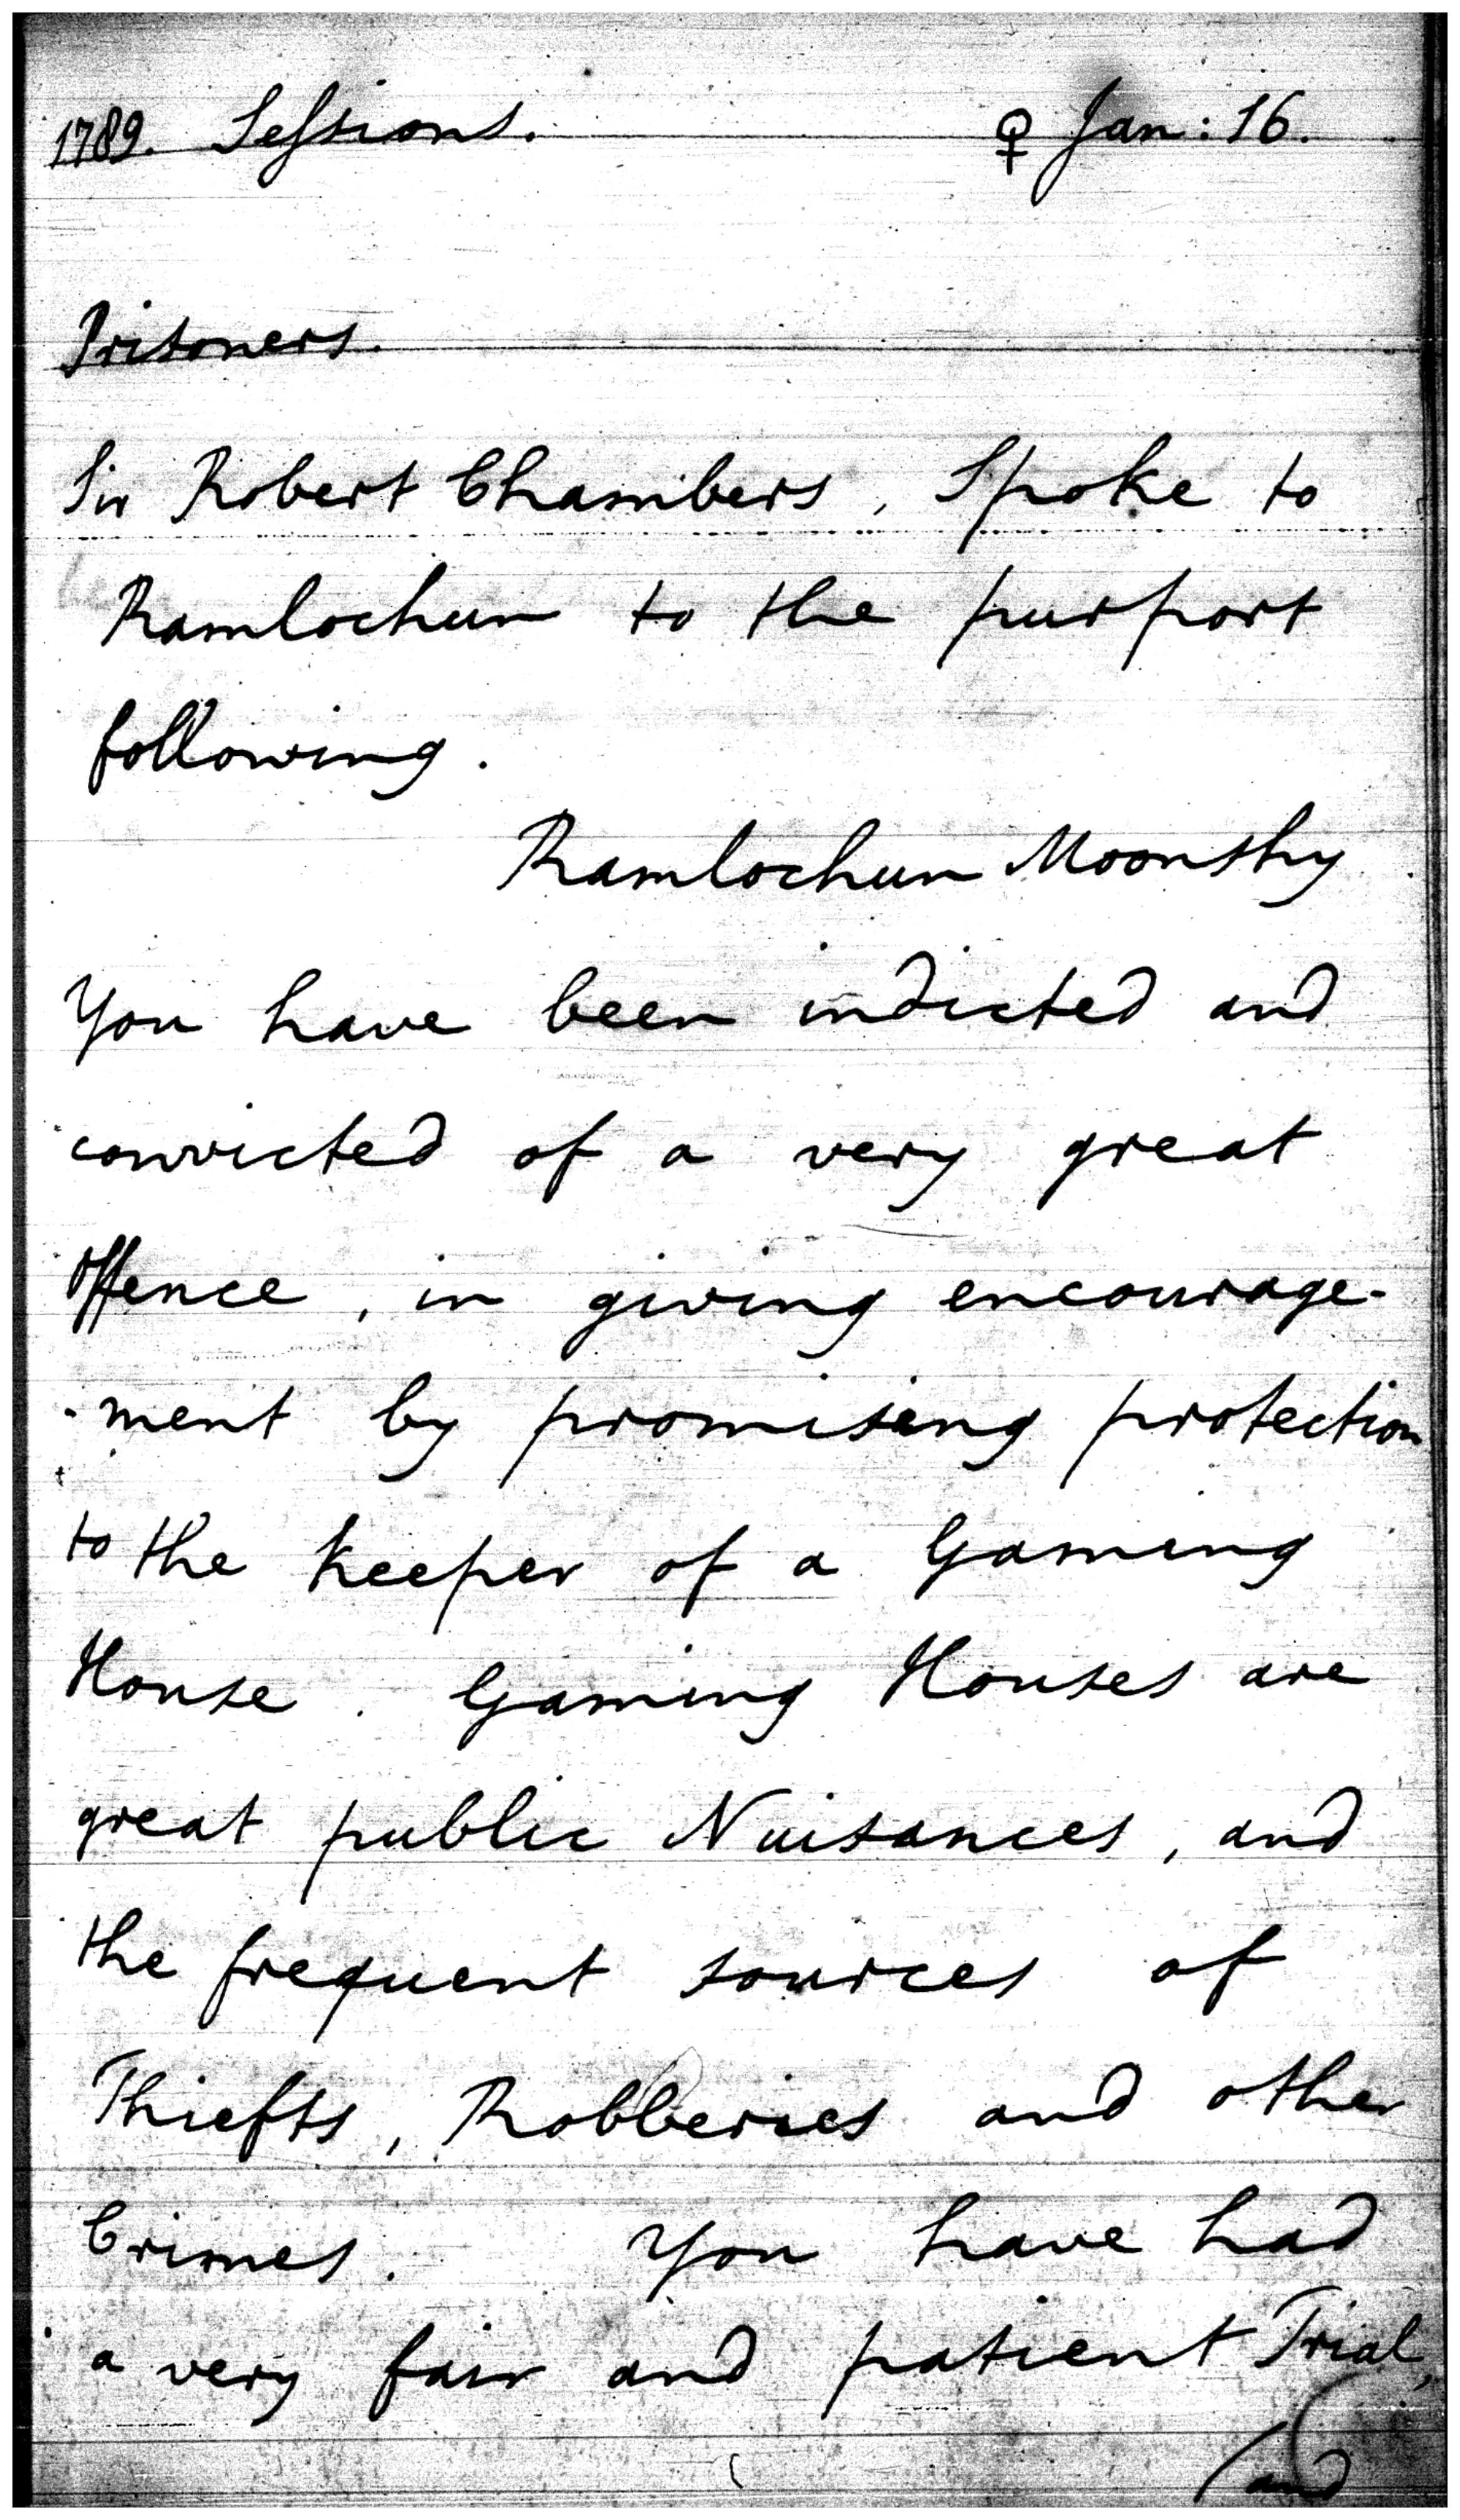 1789. Sessions. ♀ Jan: 16.
Prisoners.
Sir Robert Chambers, Spoke to
Ramlochun to the purport
following.
Ramlochun Moonshy
You have been indicted and
convicted of a very great
Offence, in giving encourage-
-ment by promising protection
to the keeper of a Gaming
House. Gaming Houses are
great public Nuisances, and
the frequent sources of
Thiefts, Robberies and other
Crimes. You have had
a very fair and patient Trial,
(and